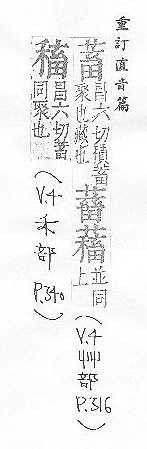 重訂直音篇
蓄 昌六切積蓄
聚也藏也
並同
上
(V.4 艸部 P.316)
稸 昌六切蓄
同聚也
(V.4 禾部 P.340)